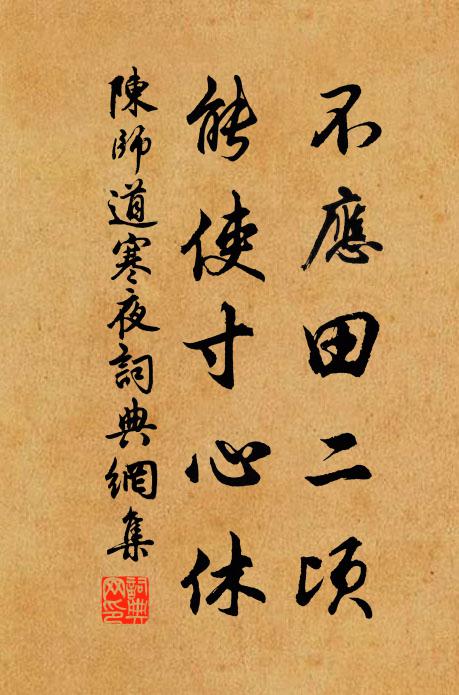 不應田二頃
能使寸心休
陳師道寒夜詞典網集
詞典网印